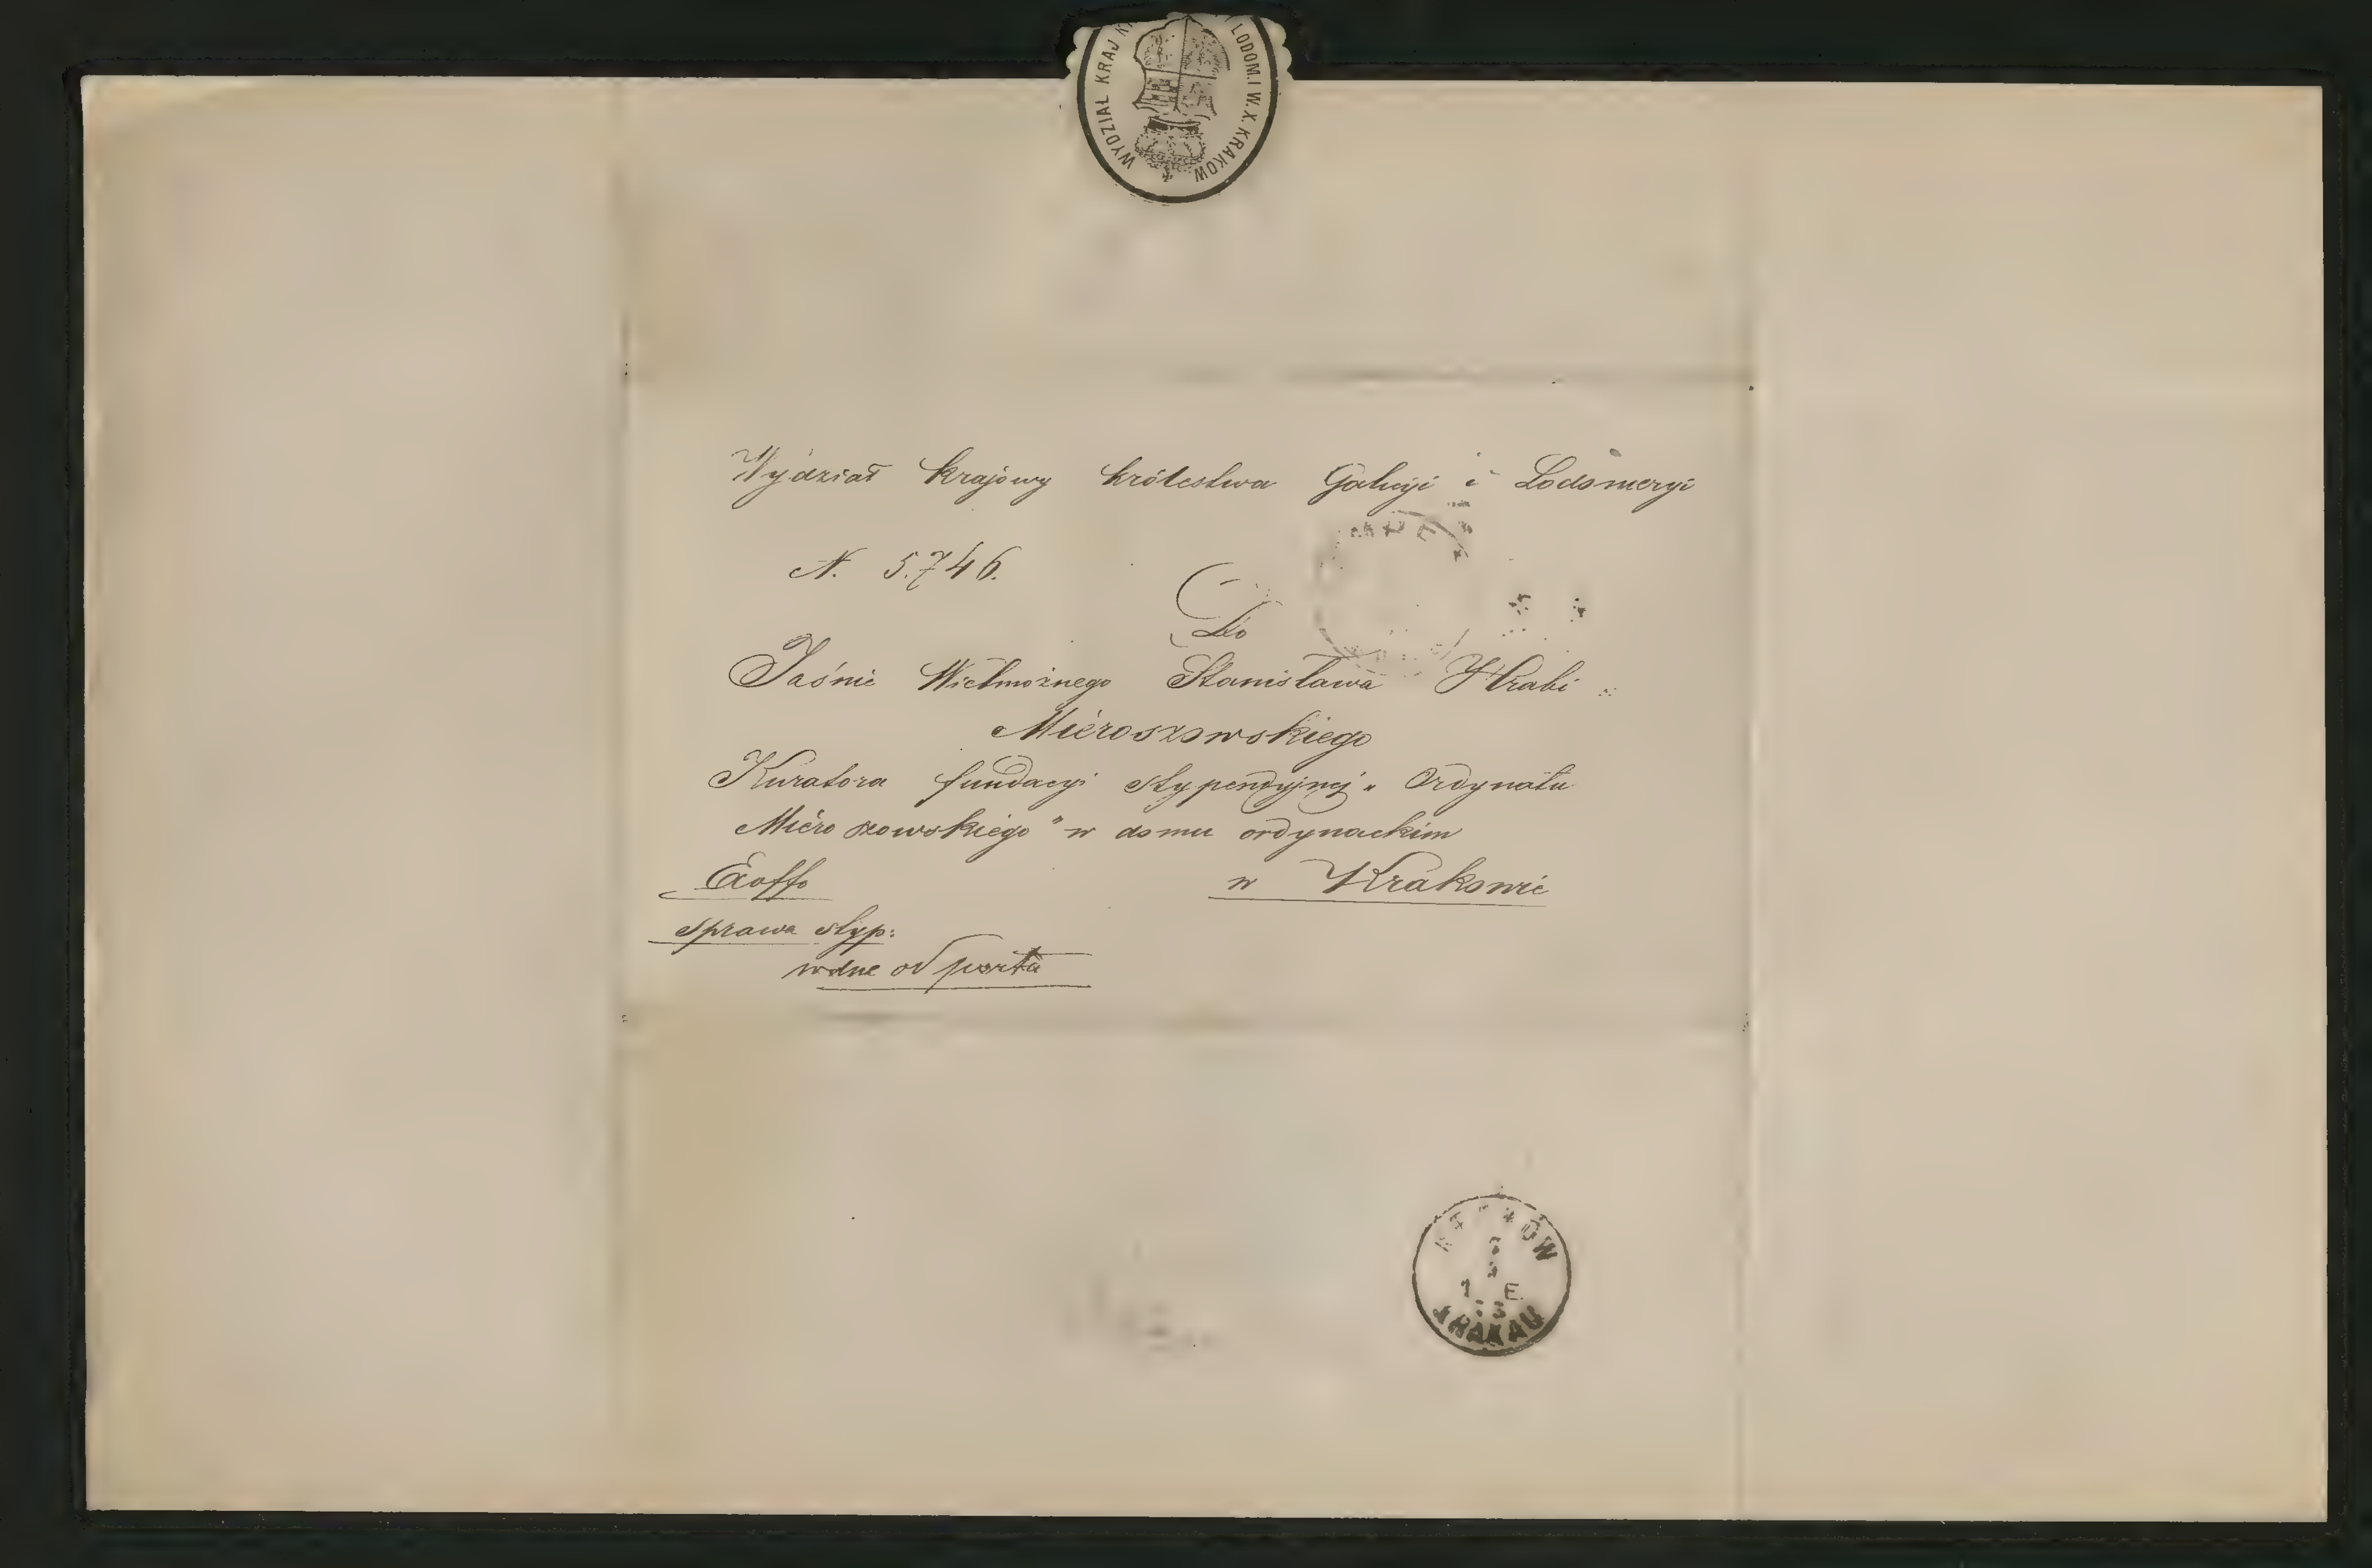 WYDZIAŁ KRAJ LODOM. I W. X. KRAKOW
Wydział krajowy królestwa Galicyi i Lodomeryi
N. 5.746.
Do
Jaśnie Wielmożnego Stanisława Hrabi
Mieroszowskiego
Kuratora fundacyi stypendyjnej „Ordynata
Mieroszowskiego" w domu ordynackim
Exoffo
w Krakowie
sprawa styp:
wolne od porta
KRAKÓW
1 E.
KRAKAU